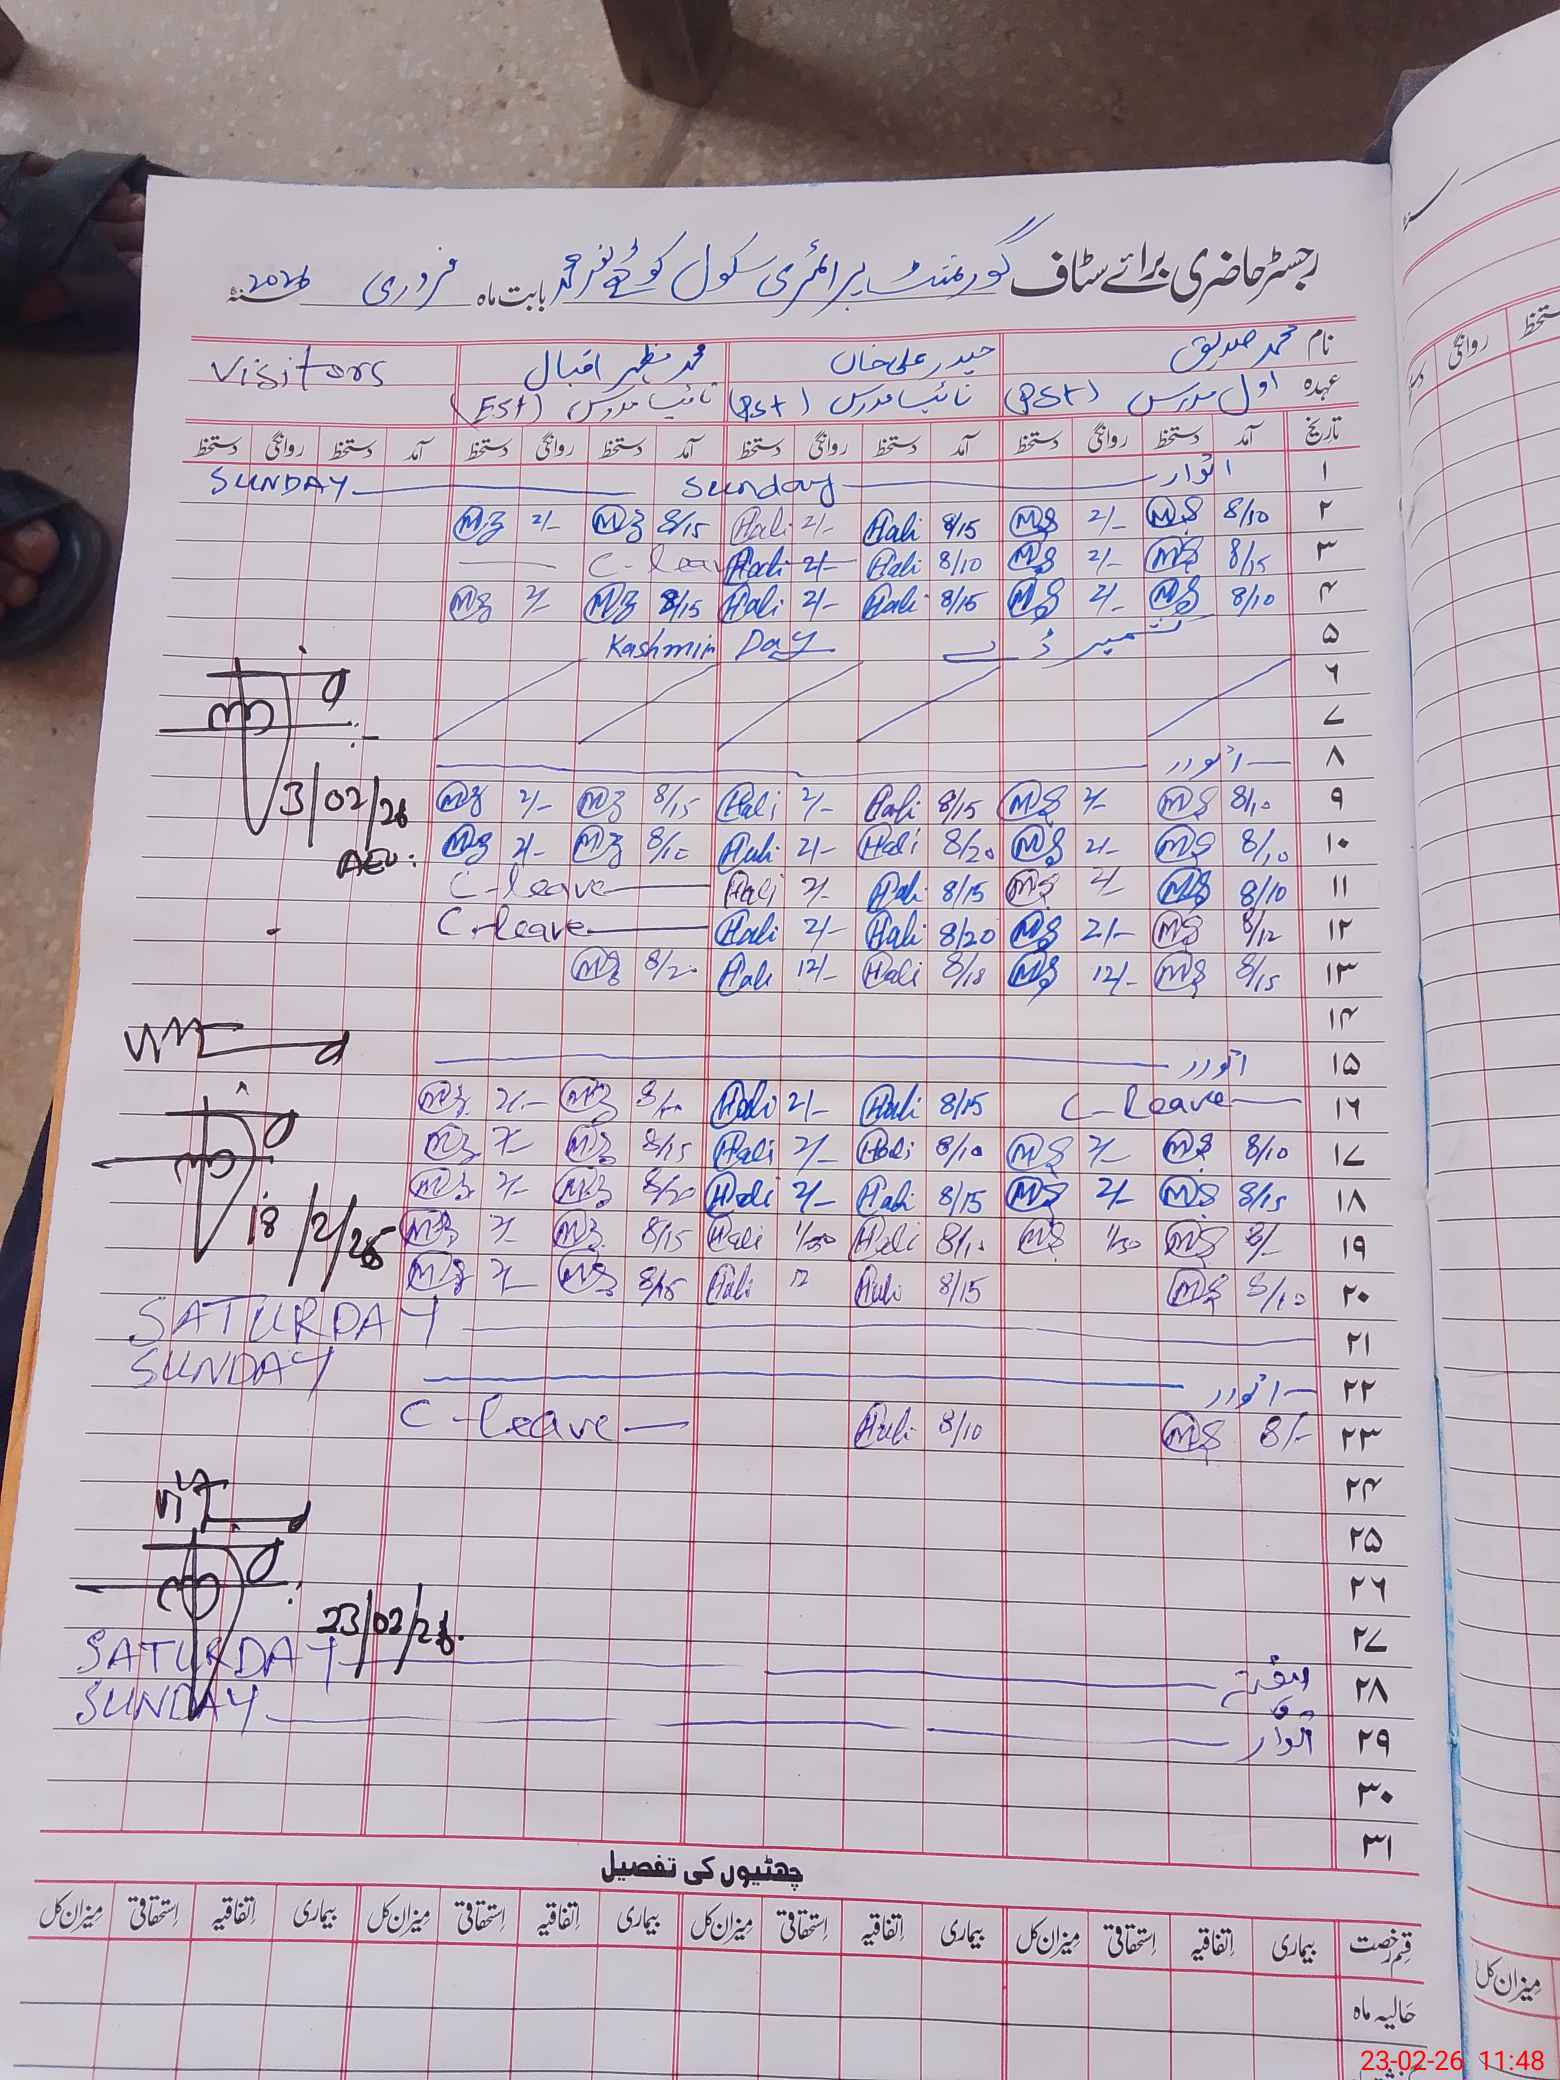 رجسٹر حاضری برائے سٹاف گورنمنٹ پرائمری سکول بابت ماہ فروری 2026
نام محمد صدیق حیدر علی خاں محمد اقبال Visitors
عہدہ اول مدرس (PST) نائب مدرس (PST) نائب مدرس (EST)
تاریخ آمد دستخط روانگی دستخط آمد دستخط روانگی دستخط آمد دستخط روانگی دستخط آمد دستخط روانگی دستخط
۱ اتوار Sunday SUNDAY
۲ 8/10 MS 2/- MS 8/15 Hali 2/- Hali 8/15 MZ 2/- MZ
۳ 8/15 MS 2/- MS 8/10 Hali 2/- Hali C-leave
۴ 8/10 MS 2/- MS 8/15 Hali 2/- Hali 8/15 MZ 2/- MZ
۵ کشمیر ڈے Kashmir Day
۶
۷
۸ اتوار
۹ 8/10 MS 2/- MS 8/15 Hali 2/- Hali 8/15 MZ 2/- MZ 3/02/26
۱۰ 8/10 MS 2/- MS 8/20 Hali 2/- Hali MZ 2/- MZ AEO:
۱۱ 8/10 MS 2/- MS 8/15 Hali 2/- Hali C-leave
۱۲ 8/12 MS 2/- MS 8/20 Hali 2/- Hali C-leave
۱۳ 8/15 MS 12/- MS 8/18 Hali 12/- Hali 8/20 MZ
۱۴
۱۵ اتوار
۱۶ C-leave 8/15 Hali 2/- Hali MZ 2/- MZ
۱۷ 8/10 MS 2/- MS 8/10 Hali 2/- Hali 8/15 MZ 2/- MZ
۱۸ 8/15 MS 2/- MS 8/15 Hali 2/- Hali 8/20 MZ 2/- MZ
۱۹ 8/- MS 1/30 MS Hali 1/30 Hali 8/15 MZ 2/- MZ 18/2/26
۲۰ 8/10 MS 8/15 Hali 12 Hali 8/15 MZ 2/- MZ
۲۱ SATURDAY
۲۲ اتوار SUNDAY
۲۳ 8/- MS 8/10 Hali C-leave
۲۴
۲۵
۲۶
۲۷ 23/02/26
۲۸ ہفتہ SATURDAY
۲۹ اتوار SUNDAY
۳۰
۳۱
چھٹیوں کی تفصیل
قسم رخصت بیماری اتفاقیہ استحقاقی میزان کل بیماری اتفاقیہ استحقاقی میزان کل بیماری اتفاقیہ استحقاقی میزان کل بیماری اتفاقیہ استحقاقی میزان کل
حالیہ ماہ
دستخط روانگی
میزان کل
23-02-26 11:48